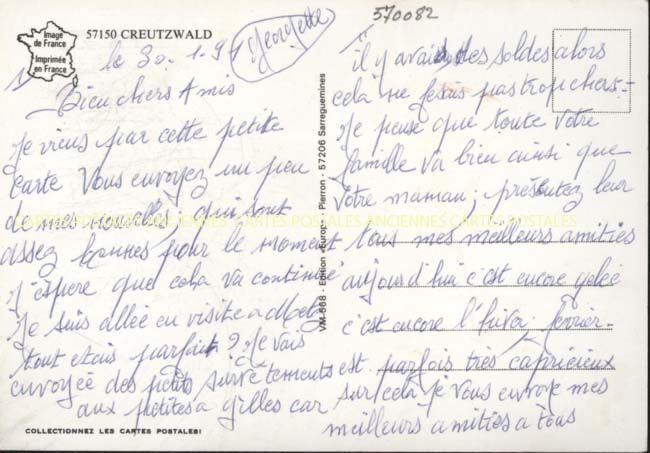 Image
de France
Imprimée
en France
57150 CREUTZWALD
le 30.1.91
Georgette
570082
1)
Bien chers Amis
Je viens par cette petite
carte vous envoyez un peu
de mes nouvelles, qui sont
assez bonnes pour le moment
j'espere que cela va continué
Je suis allée en visite a Metz
tout etais parfait ? Je vais
envoyée des petits survêtements
aux petites a gilles car
il y avait des soldes alors
cela ne pas trop chers -
Je pense que toute votre
famille va bien ainsi que
votre maman, présentez leur
tous mes meilleurs amitiés
aujourd'hui c'est encore gelée
c'est encore l'hiver fevrier
est parfois très capricieux
sur cela je vous envoye mes
meilleurs amities a tous
VM-668 - Edition «Europ» - Pierron - 57206 Sarreguemines
CARTES POSTALES ANCIENNES CARTES POSTALES
COLLECTIONNEZ LES CARTES POSTALES!